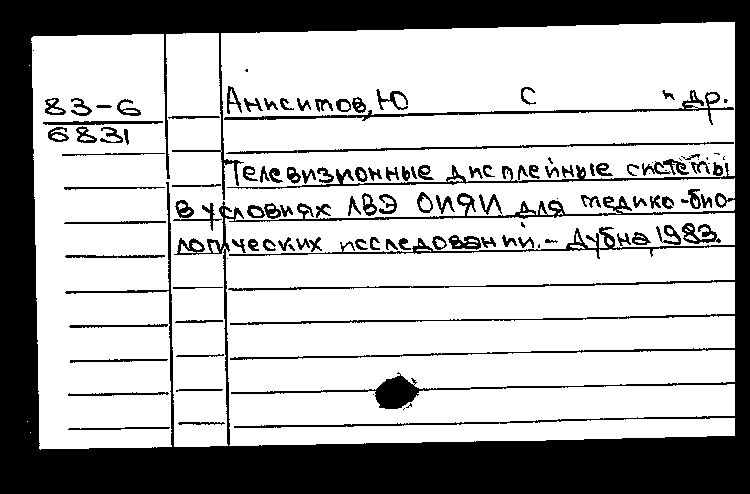 83-6
6831
Анисимов, Ю С и др.
Телевизионные дисплейные системы
в условиях ЛВЭ ОИЯИ для медико-био-
логических исследований. - Дубна, 1983.